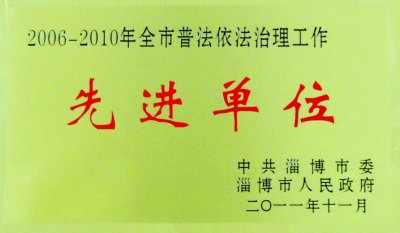 2006-2010年全市普法依法治理工作
先进单位
中共淄博市委
淄博市人民政府
二〇一一年十一月